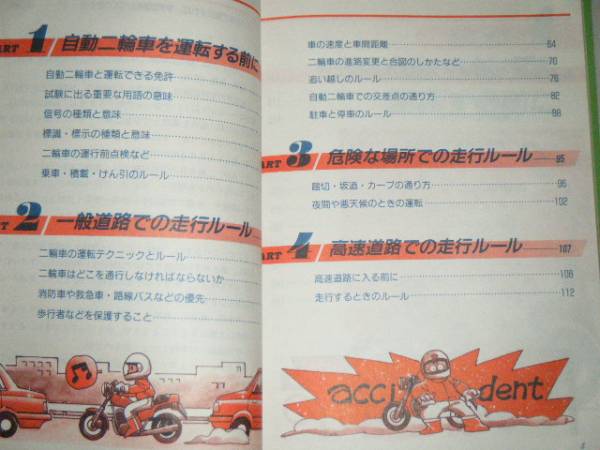 PART 1 自動二輪車を運転する前に
自動二輪車と運転できる免許
試験に出る重要な用語の意味
信号の種類と意味
標識・標示の種類と意味
二輪車の運行前点検など
乗車・積載・けん引のルール
2 一般道路での走行ルール
二輪車の運転テクニックとルール
二輪車はどこを通行しなければならないか
消防車や救急車・路線バスなどの優先
歩行者などを保護すること
車の速度と車間距離 64
二輪車の進路変更と合図のしかたなど 70
追い越しのルール 76
自動二輪車での交差点の通り方 82
駐車と停車のルール 88
PART 3 危険な場所での走行ルール 95
踏切・坂道・カーブの通り方 96
夜間や悪天候のときの運転 102
PART 4 高速道路での走行ルール 107
高速道路に入る前に 108
走行するときのルール 112
acci dent